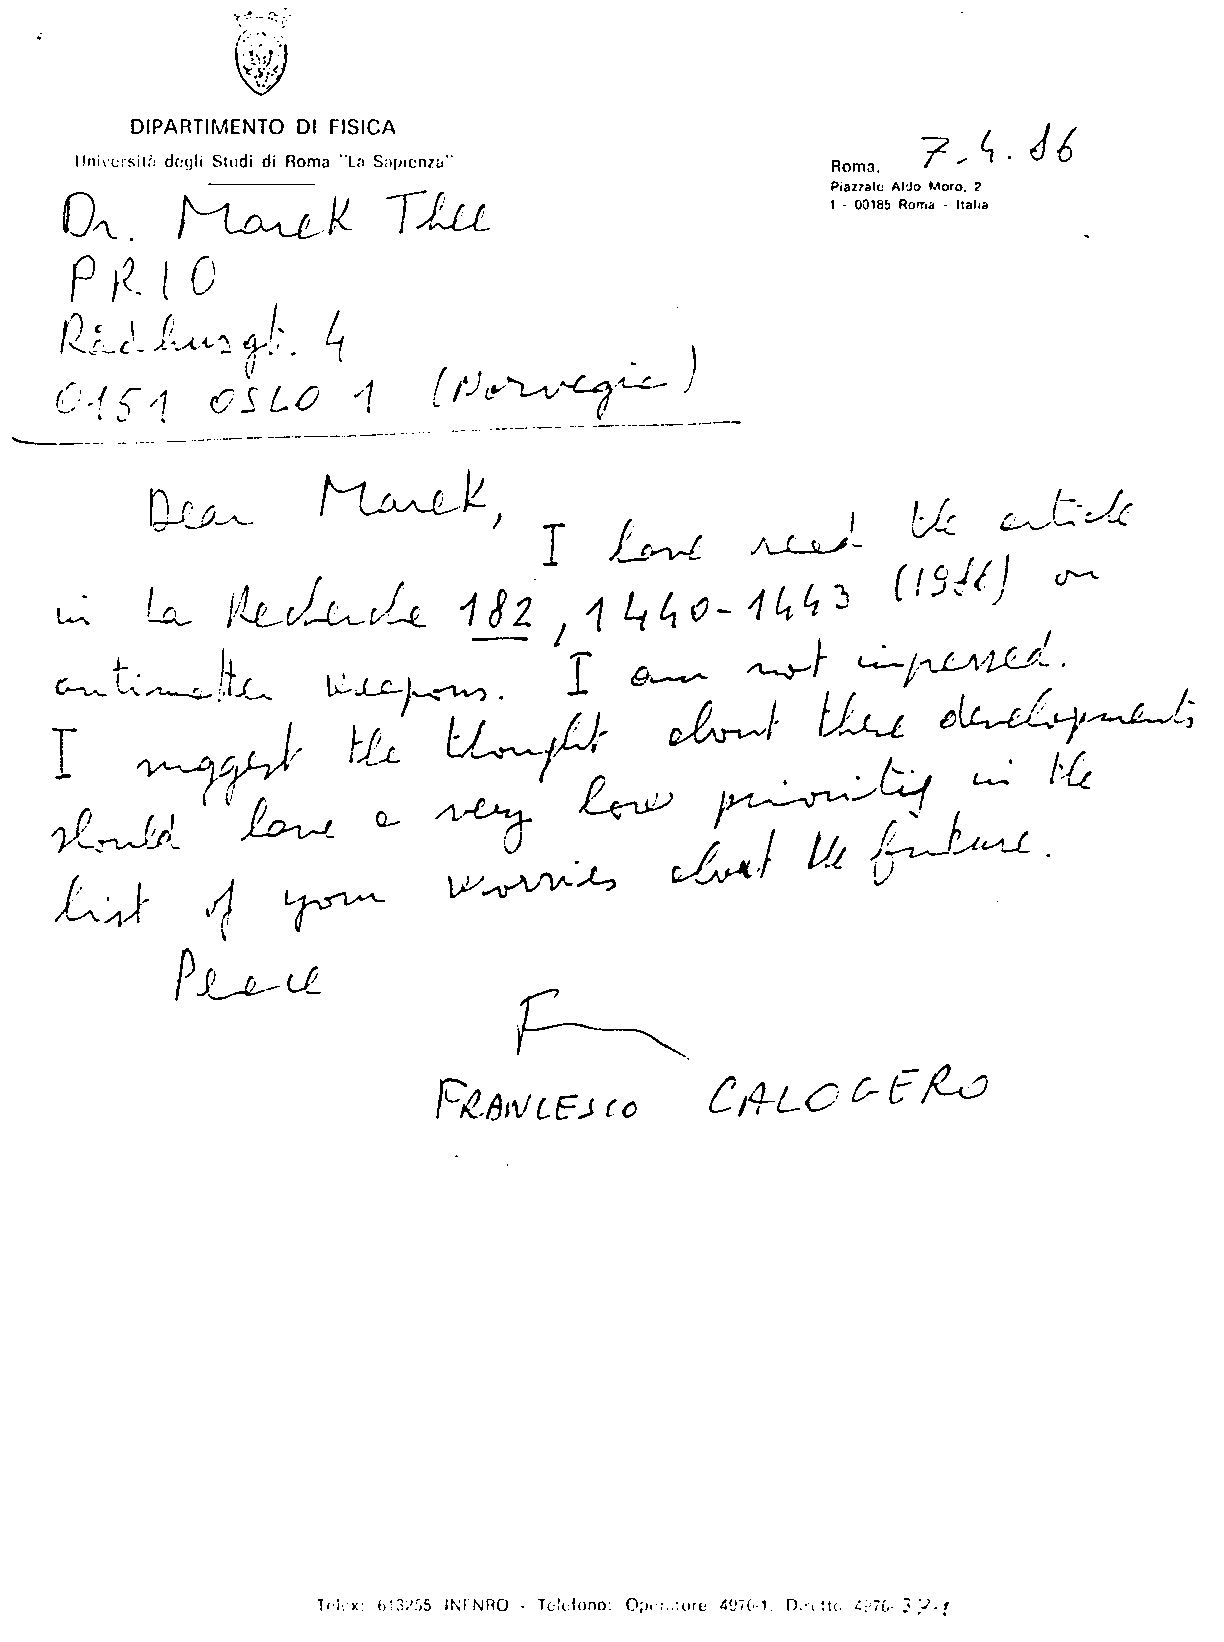 DIPARTIMENTO DI FISICA
Università degli Studi di Roma "La Sapienza"
Roma, 7.4.86
Piazzale Aldo Moro, 2
1 - 00185 Roma - Italia
Dr. Marek Thee
PRIO
Rådhusgt. 4
0151 OSLO 1 (Norvegia)
Dear Marek,
I have read the article
in La Recherche 182, 1440-1443 (1986) on
antimatter weapons. I am not impressed.
I suggest the thought about these developments
should have a very low priority in the
list of your worries about the future.
Peace
F
FRANCESCO CALOGERO
Telex: 613255 INFNRO - Telefono: Operatore 4976-1, Diretto 4976-